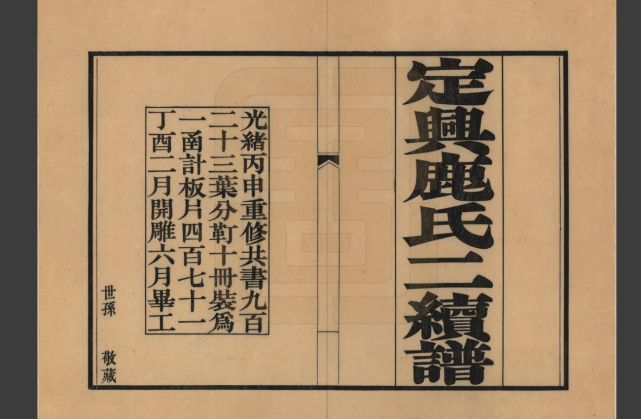 定興鹿氏二續譜
光緒丙申重修共書九百
二十三葉分靪十冊裝爲
一函計板片四百七十一
丁酉二月開雕六月畢工
世孫 敬藏